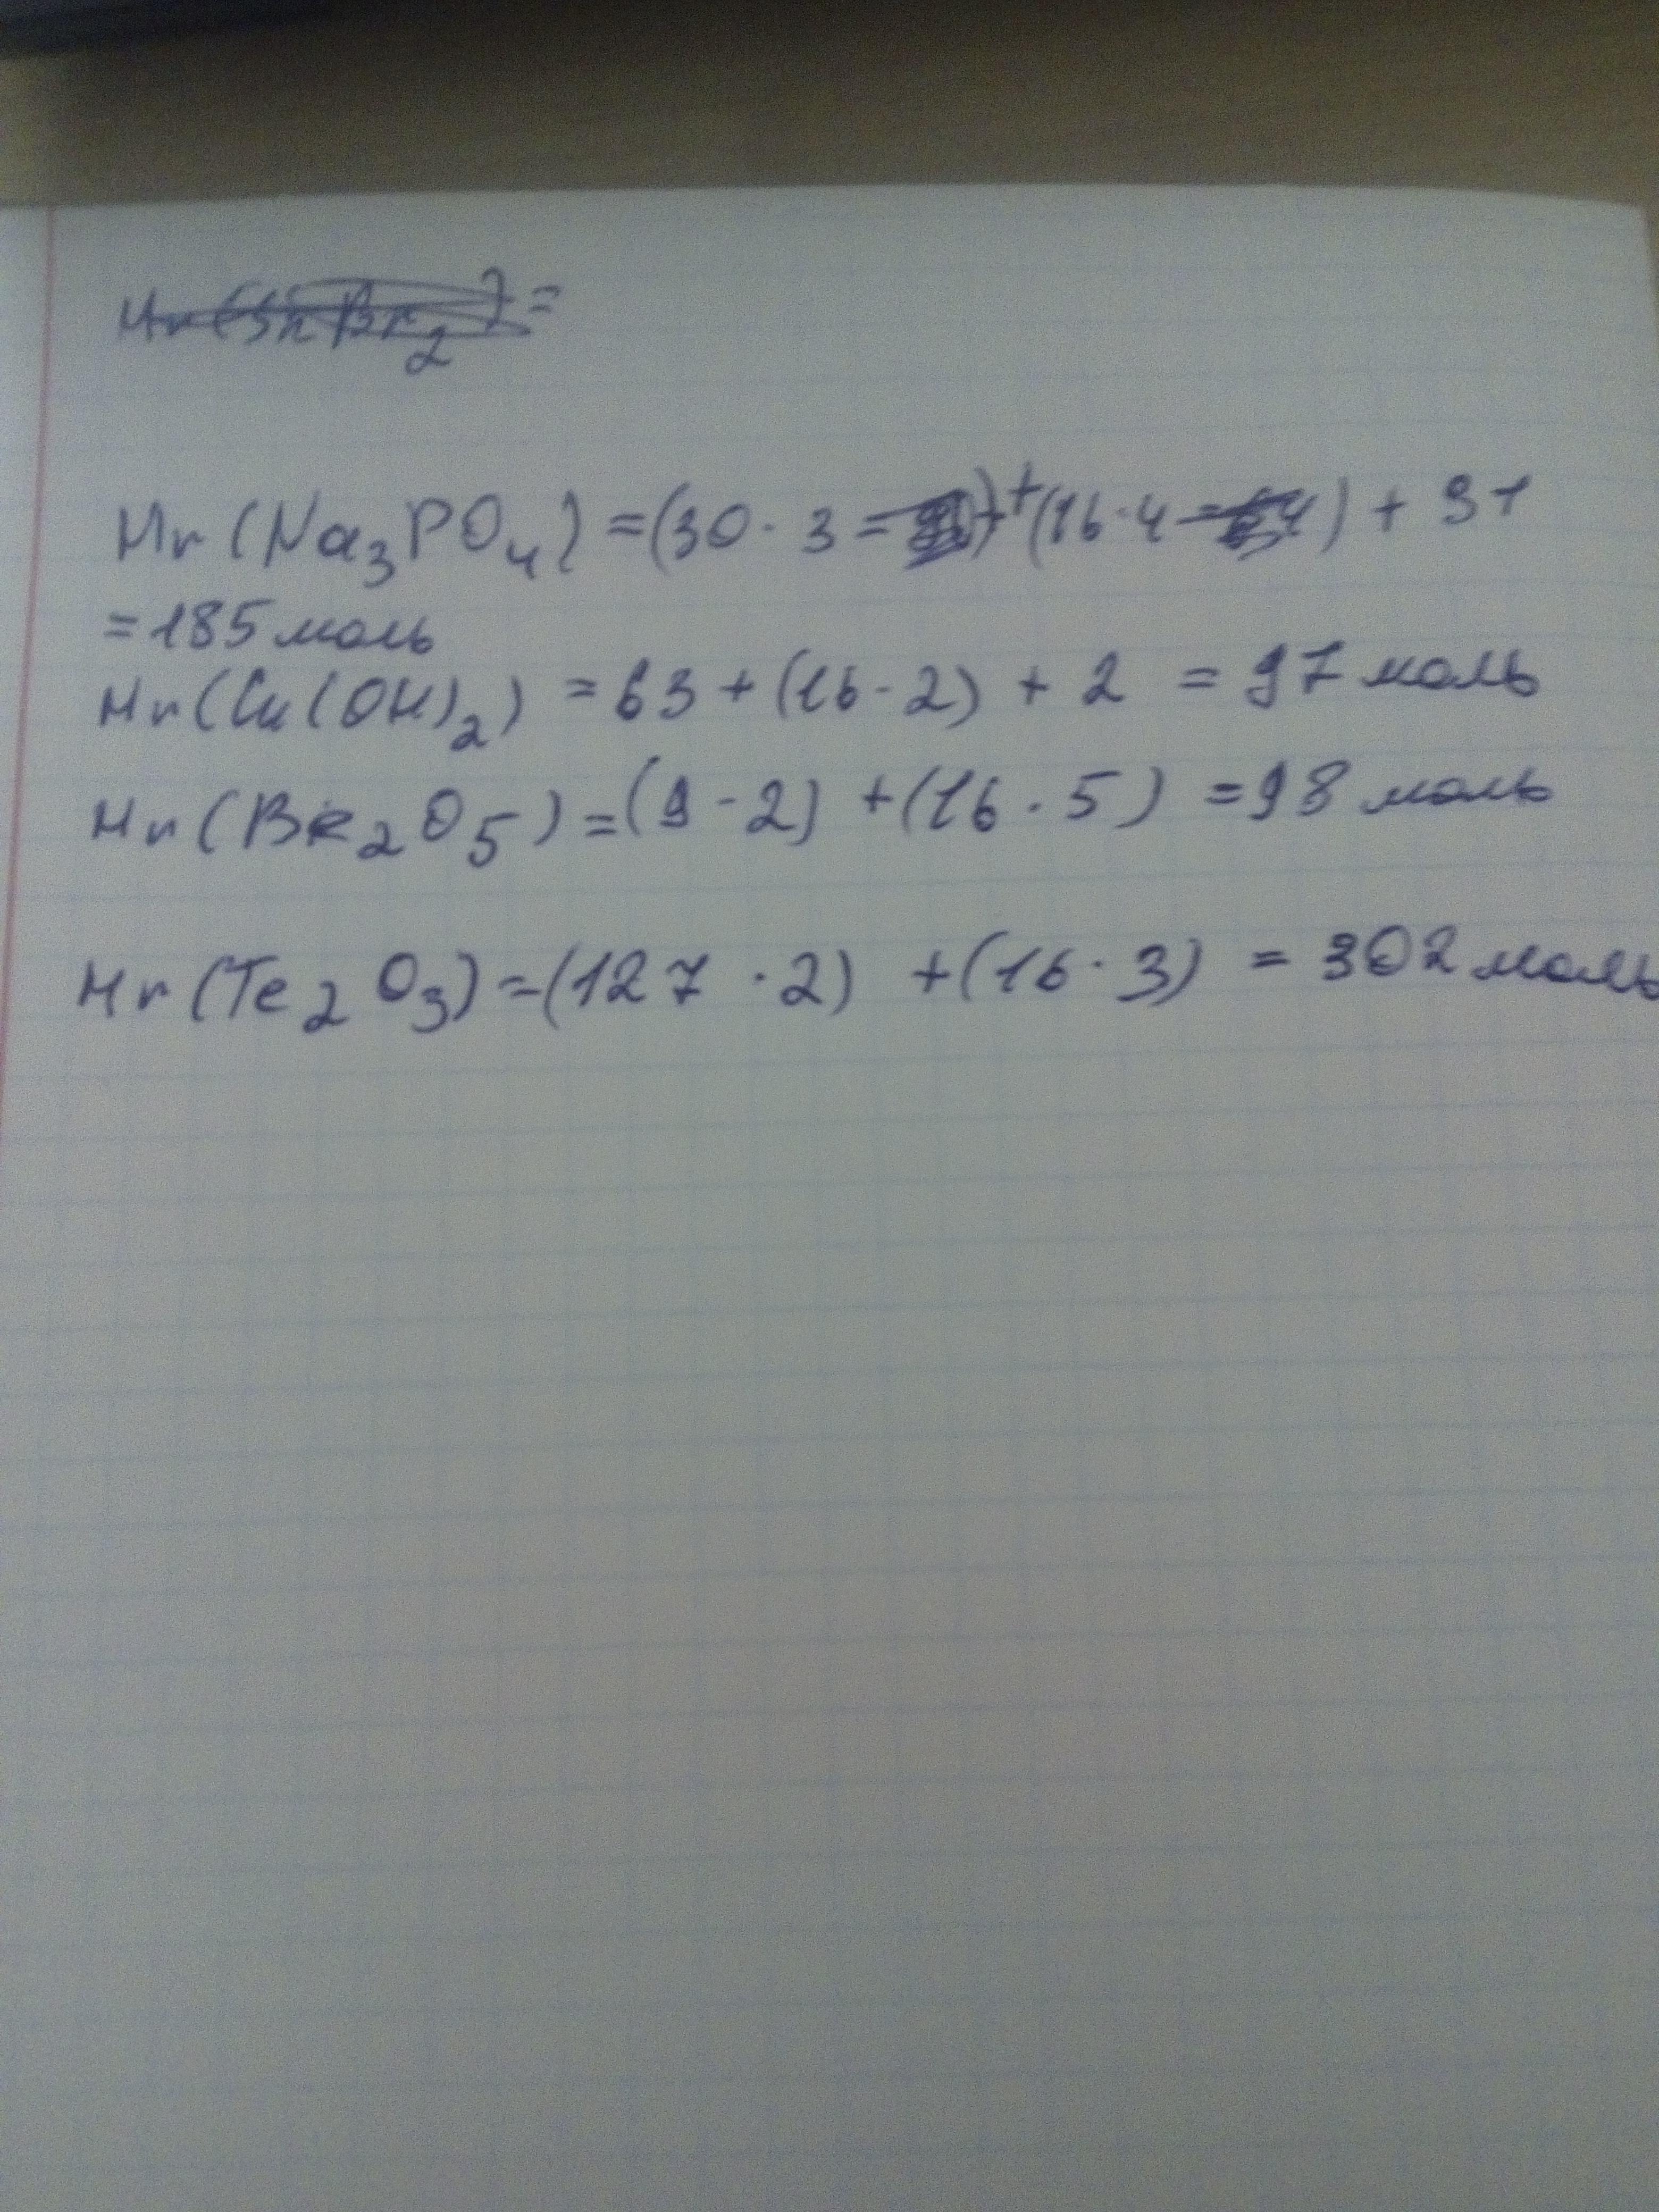 Mr(SnBr₂) =
Mr(Na₃PO₄) = (30 · 3 = ) + (16 · 4 = 64) + 31
= 185 моль
Mr(Cu(OH)₂) = 63 + (16 · 2) + 2 = 97 моль
Mr(Be₂O₅) = (9 · 2) + (16 · 5) = 98 моль
Mr(Te₂O₃) = (127 · 2) + (16 · 3) = 302 моль